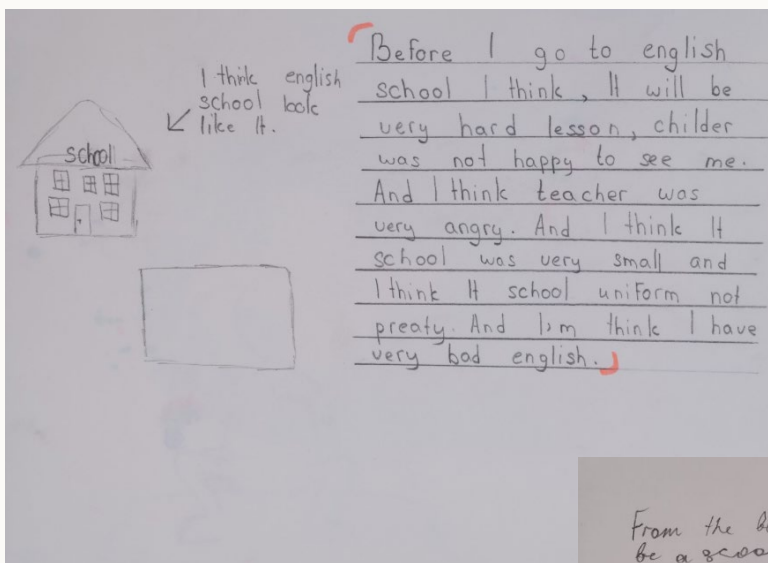 I think english
school look
like It.
school
Before I go to english
school I think, It will be
very hard lesson, childer
was not happy to see me.
And I think teacher was
very angry. And I think It
school was very small and
I think It school uniform not
preaty. And I,m think I have
very bad english.
From the
be a scoo